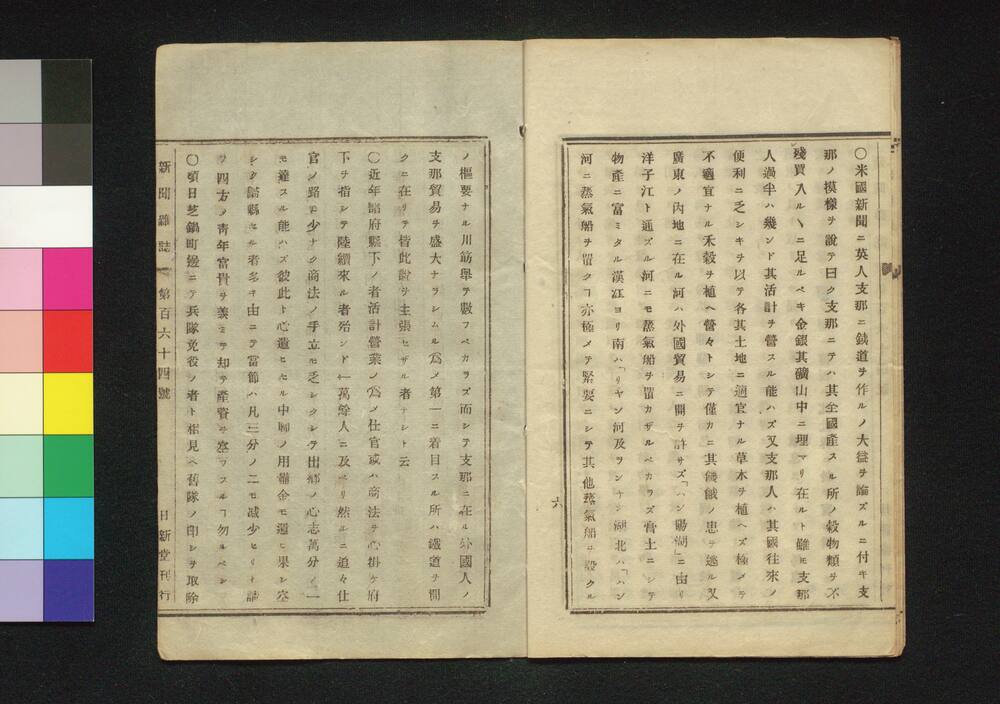 〇米國新聞ニ英人支那ニ鐵道ヲ作ルノ大益ヲ論ズルニ付キ支
那ノ模樣ヲ說テ曰ク支那ニテハ其全國產スル所ノ穀物類ヲ不
殘買入ルヽニ足ルベキ金銀其礦山中ニ埋マリ在ルト雖モ支那
人過半ハ幾ンド其活計ヲ營スル能ハズ又支那人ハ其國往來ノ
便利ニ乏シキヲ以テ各其土地ニ適宜ナル草木ヲ植ヘズ極メテ
不適宜ナル禾穀ヲ植ヘ營々トシテ僅カニ其饑餓ノ患ヲ逃ル又
廣東ノ內地ニ在ル河ハ外國貿易ニ開ヲ許サズ「ハン陽湖」ニ由リ
洋子江ト通ズル河ニモ蒸氣船ヲ置カザルベカラズ膏土ニシテ
物產ニ富ミタル漢江ヨリ南ハ「リヤン河及ヲンナン湖北ハ「ハン
河ニ蒸氣船ヲ置クヿ亦極メテ緊要ニシテ其他蒸氣船ヲ設クル
六
ノ樞要ナル川筋擧テ數フベカラズ而シテ支那ニ在ル外國人ノ
支那貿易ヲ盛大ナラシムル爲メ第一ニ着目スル所ハ鐵道ヲ開
クニ在リテ皆此說ヲ主張セザル者ナシト云
〇近年諸府縣下ノ者活計營業ノ爲メ仕官或ハ商法ヲ心掛ケ府
下ヲ指シテ陸續來ル者殆ンド一萬餘人ニ及ベリ然ルニ追々仕
官ノ路モ少ナク商法ノ手立モ乏シクシテ出鄕ノ心志萬分ノ一
モ達スル能ハズ彼此ト心遣ヒセル中
ノ用備金モ遣ヒ果シ空
シク歸縣セル者多キ由ニテ當節ハ凡三分ノ二モ減少セリト
ヲ四方ノ靑年富貴ヲ羨ミテ却テ產資ヲ空フスルヿ勿ルベシ
〇頃日芝鍋町邊ニテ兵隊免役ノ者ト相見ヘ舊隊ノ印シヲ取除
新聞雜誌 第百六十四號 日新堂刊行